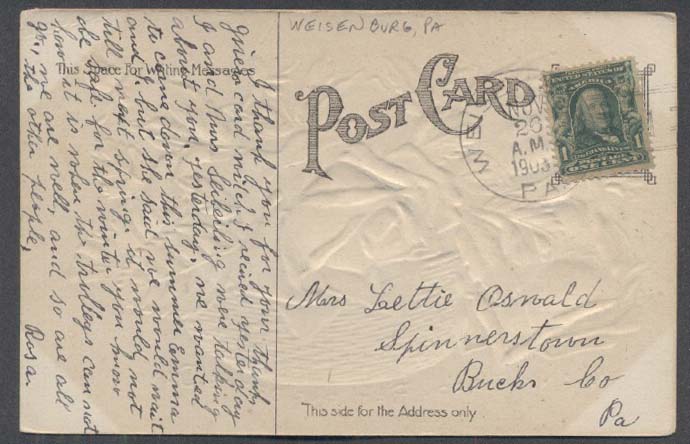 WEISENBURG, PA
This Space for Writing Messages
POST CARD
NOV
20
A.M.
1903
WEI
PA
UNITED STATES OF AMERICA
1
I thank you for your thank
given card wich I recived yesterday
I and Mrs Seiberling were talking
about you, yesterday. we wanted
to come down this summer Emma
and I, but she said we would wait
till next spring it would not
be safe for the winter you know
how it is when the trolleys can not
go, we are well, and so are all
the other people,
Rosa.
Mrs Lettie Oswald
Spinnerstown
Bucks Co
Pa
This side for the Address only.